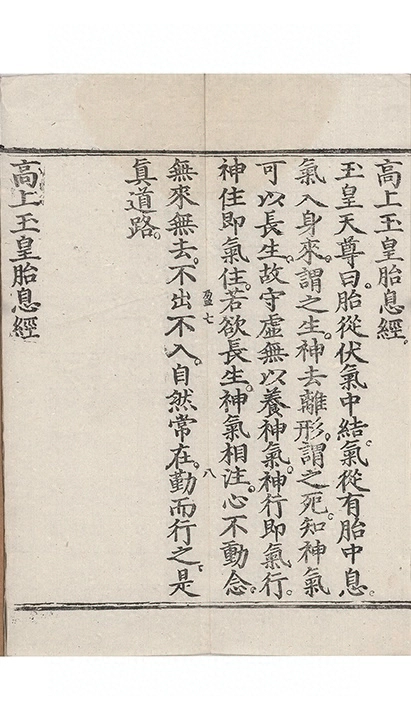 高上玉皇胎息經。
玉皇天尊曰。胎從伏氣中結。氣從有胎中息。
氣入身來。謂之生。神去離形。謂之死。知神氣
可以長生。故守虛無以養神氣。神行即氣行。
神住即氣住。若欲長生。神氣相注。心不動念。
盈七
八
無來無去。不出不入。自然常在。勤而行之。是
眞道路。
高上玉皇胎息經